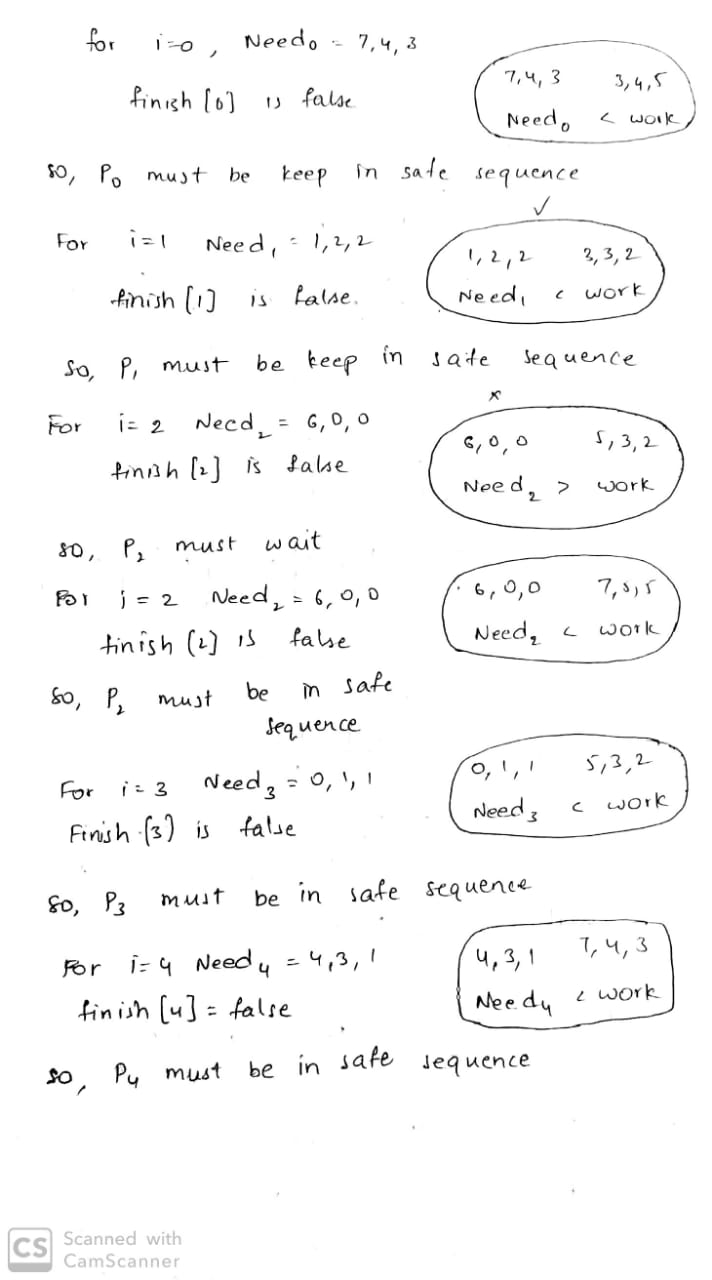 for i=0, Need0 = 7,4,3
finish [0] is false
7,4,3 3,4,5
Need0 < work
so, P0 must be keep in safe sequence
✓
For i=1 Need1 = 1,2,2
finish [1] is false.
1,2,2 3,3,2
Need1 < work
so, P1 must be keep in safe sequence
x
For i=2 Need2 = 6,0,0
finish [2] is false
6,0,0 5,3,2
Need2 > work
so, P2 must wait
For i=2 Need2 = 6,0,0
finish (2) is false
6,0,0 7,5,5
Need2 < work
So, P2 must be in safe
sequence
For i=3 Need3 = 0,1,1
Finish (3) is false
0,1,1 5,3,2
Need3 < work
So, P3 must be in safe sequence
For i=4 Need4 = 4,3,1
finish [4] = false
4,3,1 7,4,3
Need4 < work
so, P4 must be in safe sequence
CS Scanned with
CamScanner